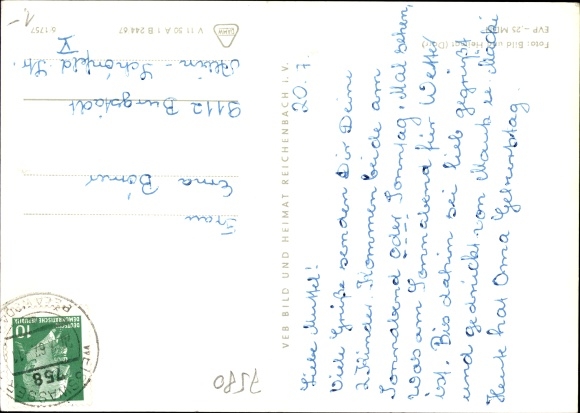 20. 7.
Liebe Muttel!
Viele Grüße senden Dir Deine
2 Kinder. Kommen beide am
Sonnabend oder Sonntag. Mal sehen,
was am Sonnabend für Wetter
ist. Bis dahin sei lieb gegrüßt
und gedrückt von
Heute hat Oma Geburtstag.
VEB BILD UND HEIMAT REICHENBACH I. V.
Foto: Bild und Heimat
EVP –,25 MDN
V 11 50 A 1 B 244 67
6 1757
Frau
Erna Börner
9112 Burgstädt
Schönfeld Str.
V
1.-
7580
DEUTSCHE
DEMOKRATISCHE REPUBLIK
10
758
WEISSWASSER